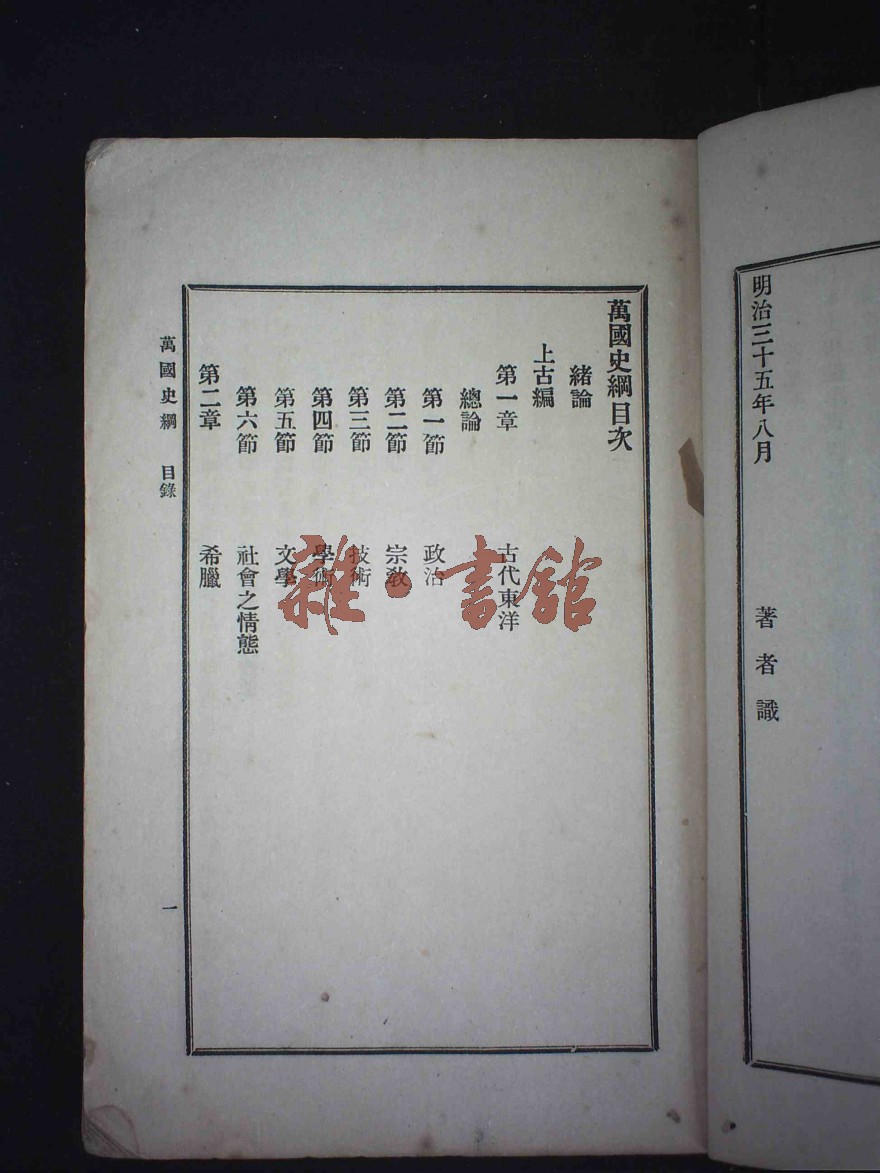 明治三十五年八月
著者識
萬國史綱目次
緒論
上古編
第一章 古代東洋
總論
第一節 政治
第二節 宗教
第三節 技術
第四節 學術
第五節 文學
第六節 社會之情態
第二章 希臘
萬國史綱 目錄
一
雜·書館